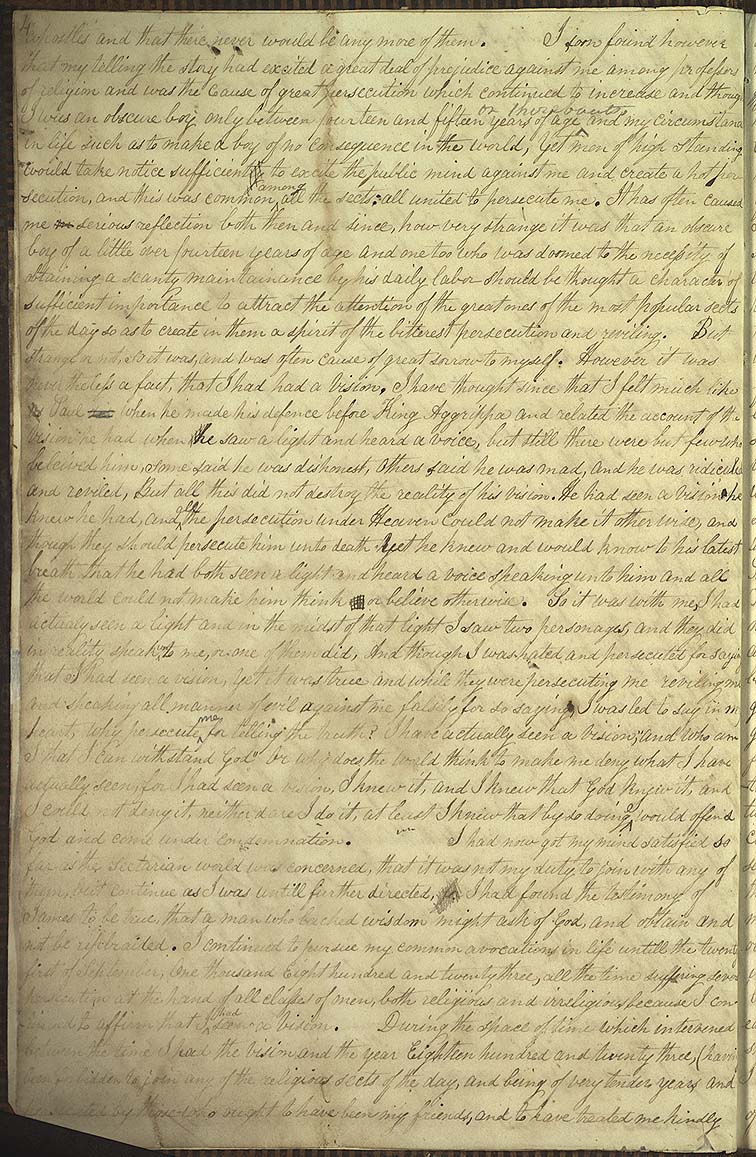 4
apostles and that there never would be any more of them. I soon found however
that my telling the story had excited a great deal of prejudice against me among professors
of religion and was the cause of great persecution which continued to increase and though
or thereabouts
I was an obscure boy only between fourteen and fifteen years of age and my circumstanc
in life such as to make a boy of no consequence in the world, Yet men of high standing
would take notice sufficient to excite the public mind against me and create a hot per
among
secution, and this was common all the sects: all united to persecute me. It has often caused
me serious reflection both then and since, how very strange it was that an obscure
boy of a little over fourteen years of age and one too who was doomed to the necessity of
obtaining a scanty maintainance by his daily labor should be thought a character of
sufficient importance to attract the attention of the great ones of the most popular sects
of the day so as to create in them a spirit of the bitterest persecution and reviling. But
strange or not, so it was, and was often cause of great sorrow to myself. However it was
nevertheless a fact, that I had had a Vision. I have thought since that I felt much like
Paul when he made his defence before King Aggrippa and related the account of the
Vision he had when he saw a light and heard a voice, but still there were but few who
beleived him, some said he was dishonest, others said he was mad, and he was ridicule
and reviled, But all this did not destroy the reality of his vision. He had seen a vision he
all
knew he had, and the persecution under Heaven could not make it otherwise, and
though they should persecute him unto death Yet he knew and would know to his latest
breath that he had both seen a light and heard a voice speaking unto him and all
the world could not make him think or believe otherwise. So it was with me, I had
actualy seen a light and in the midst of that light I saw two personages, and they did
in reality speak to me, or one of them did, And though I was hated and persecuted for sayin
that I had seen a vision, Yet it was true and while they were persecuting me reviling me
and speaking all manner of evil against me falsely for so saying, I was led to say in m
me
heart, why persecute for telling the truth? I have actually seen a vision, "and who am
I that I can withstand God" Or why does the world think to make me deny what I have
actually seen, for I had seen a vision, I knew it, and I knew that God knew it, and
I
I could not deny it, neither dare I do it, at least I knew that by so doing would offend
God and come under condemnation. I had now got my mind satisfied so
far as the sectarian world was concerned, that it was not my duty to join with any of
them, but continue as I was untill further directed, I had found the testimony of
James to be true, that a man who lacked wisdom might ask of God, and obtain and
not be upbraided. I continued to pursue my common avocations in life untill the twenty
first of September, One thousand Eight hundred and twenty three, all the time suffering sever
persecution at the hand of all classes of men, both religious and irreligious because I con
had
tinued to affirm that I seen a vision. During the space of time which intervened
between the time I had the vision and the year Eighteen hundred and twenty three, (havin
been forbidden to join any of the religious sects of the day, and being of very tender years and
persecuted by those who ought to have been my friends, and to have treated me kindly